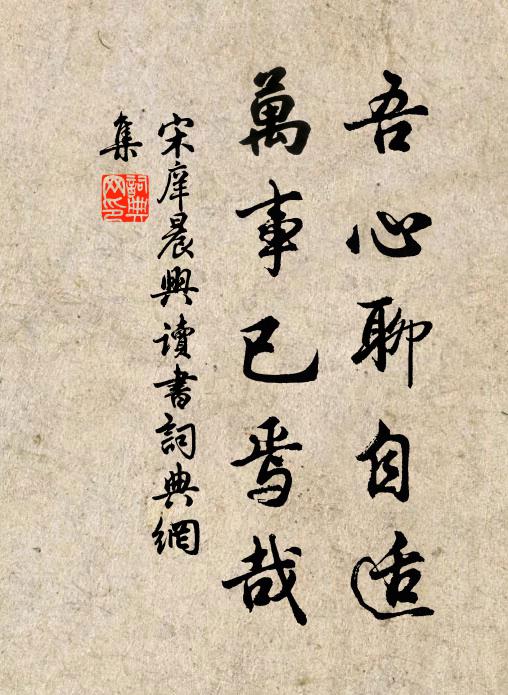 吾心聊自适
萬事已焉哉
宋庠晨興讀書詞典網
集
詞典
网印